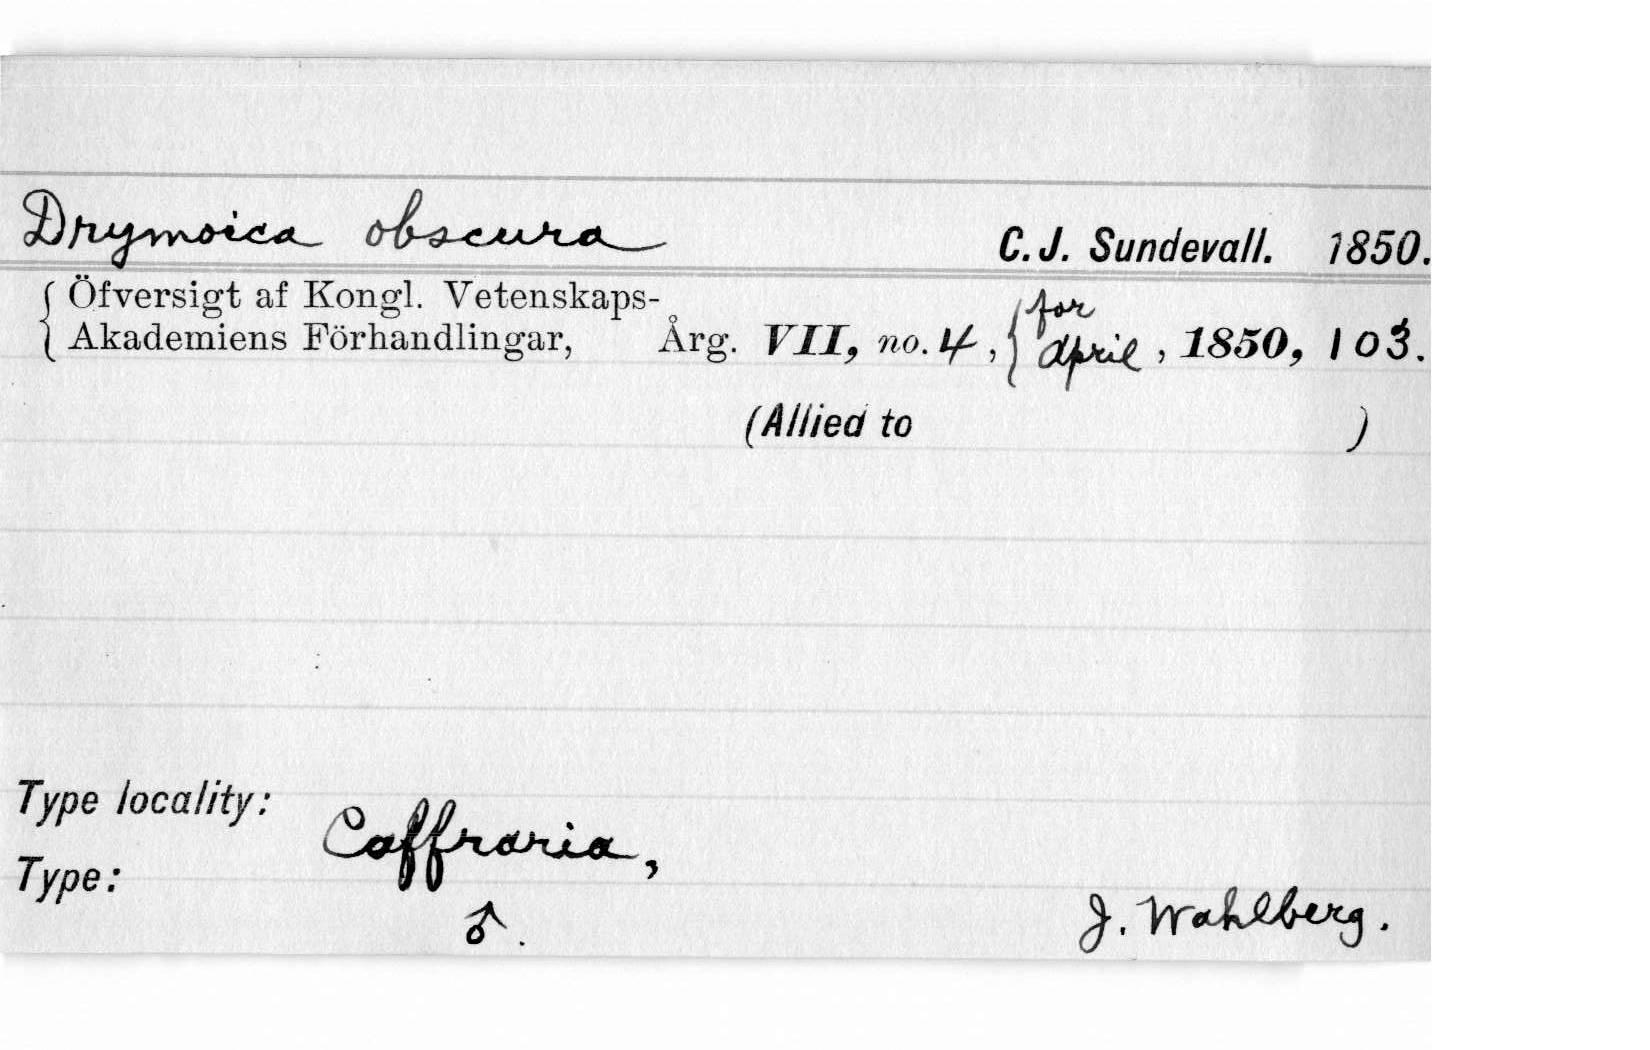 Drymoica obscura C. J. Sundevall. 1850.
{ Öfversigt af Kongl. Vetenskaps-
Akademiens Förhandlingar, Årg. VII, no. 4, { for April, 1850, 103.
(Allied to )
Type locality: Caffraria,
Type: ♂. J. Wahlberg.